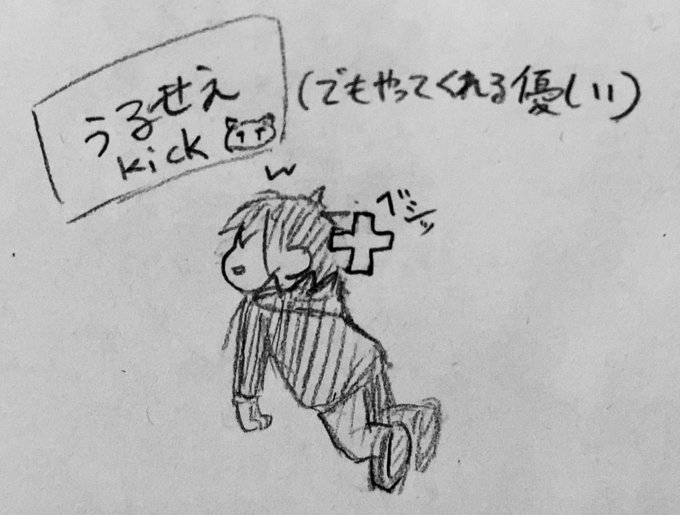 うるせえ
kick
(でもやってくれる優しい)
w
ベシッ